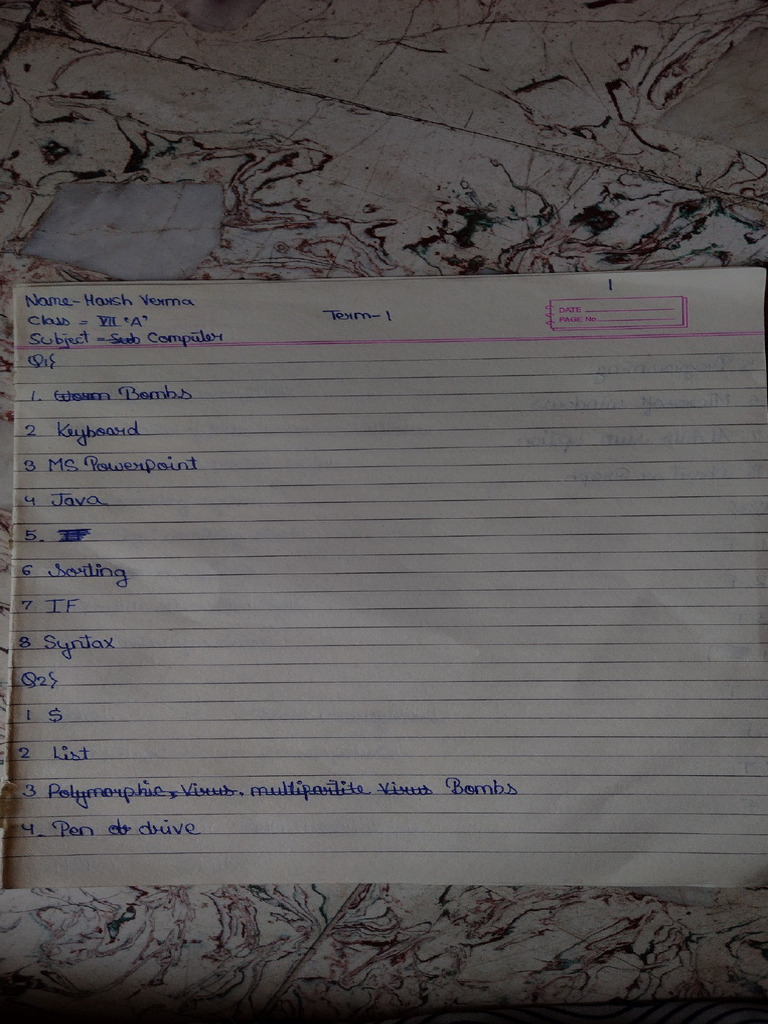 1
Name-Harsh Verma
Class = VII "A"
Term-1
DATE
PAGE No
Subject = Sub Computer
Q1}
1. Worm Bombs
2 Keyboard
3 MS Powerpoint
4 Java
5. IF
6 Sorting
7 IF
8 Syntax
Q2}
1 $
2 List
3 Polymorphic, Virus. multipartite Virus Bombs
4. Pen dr drive